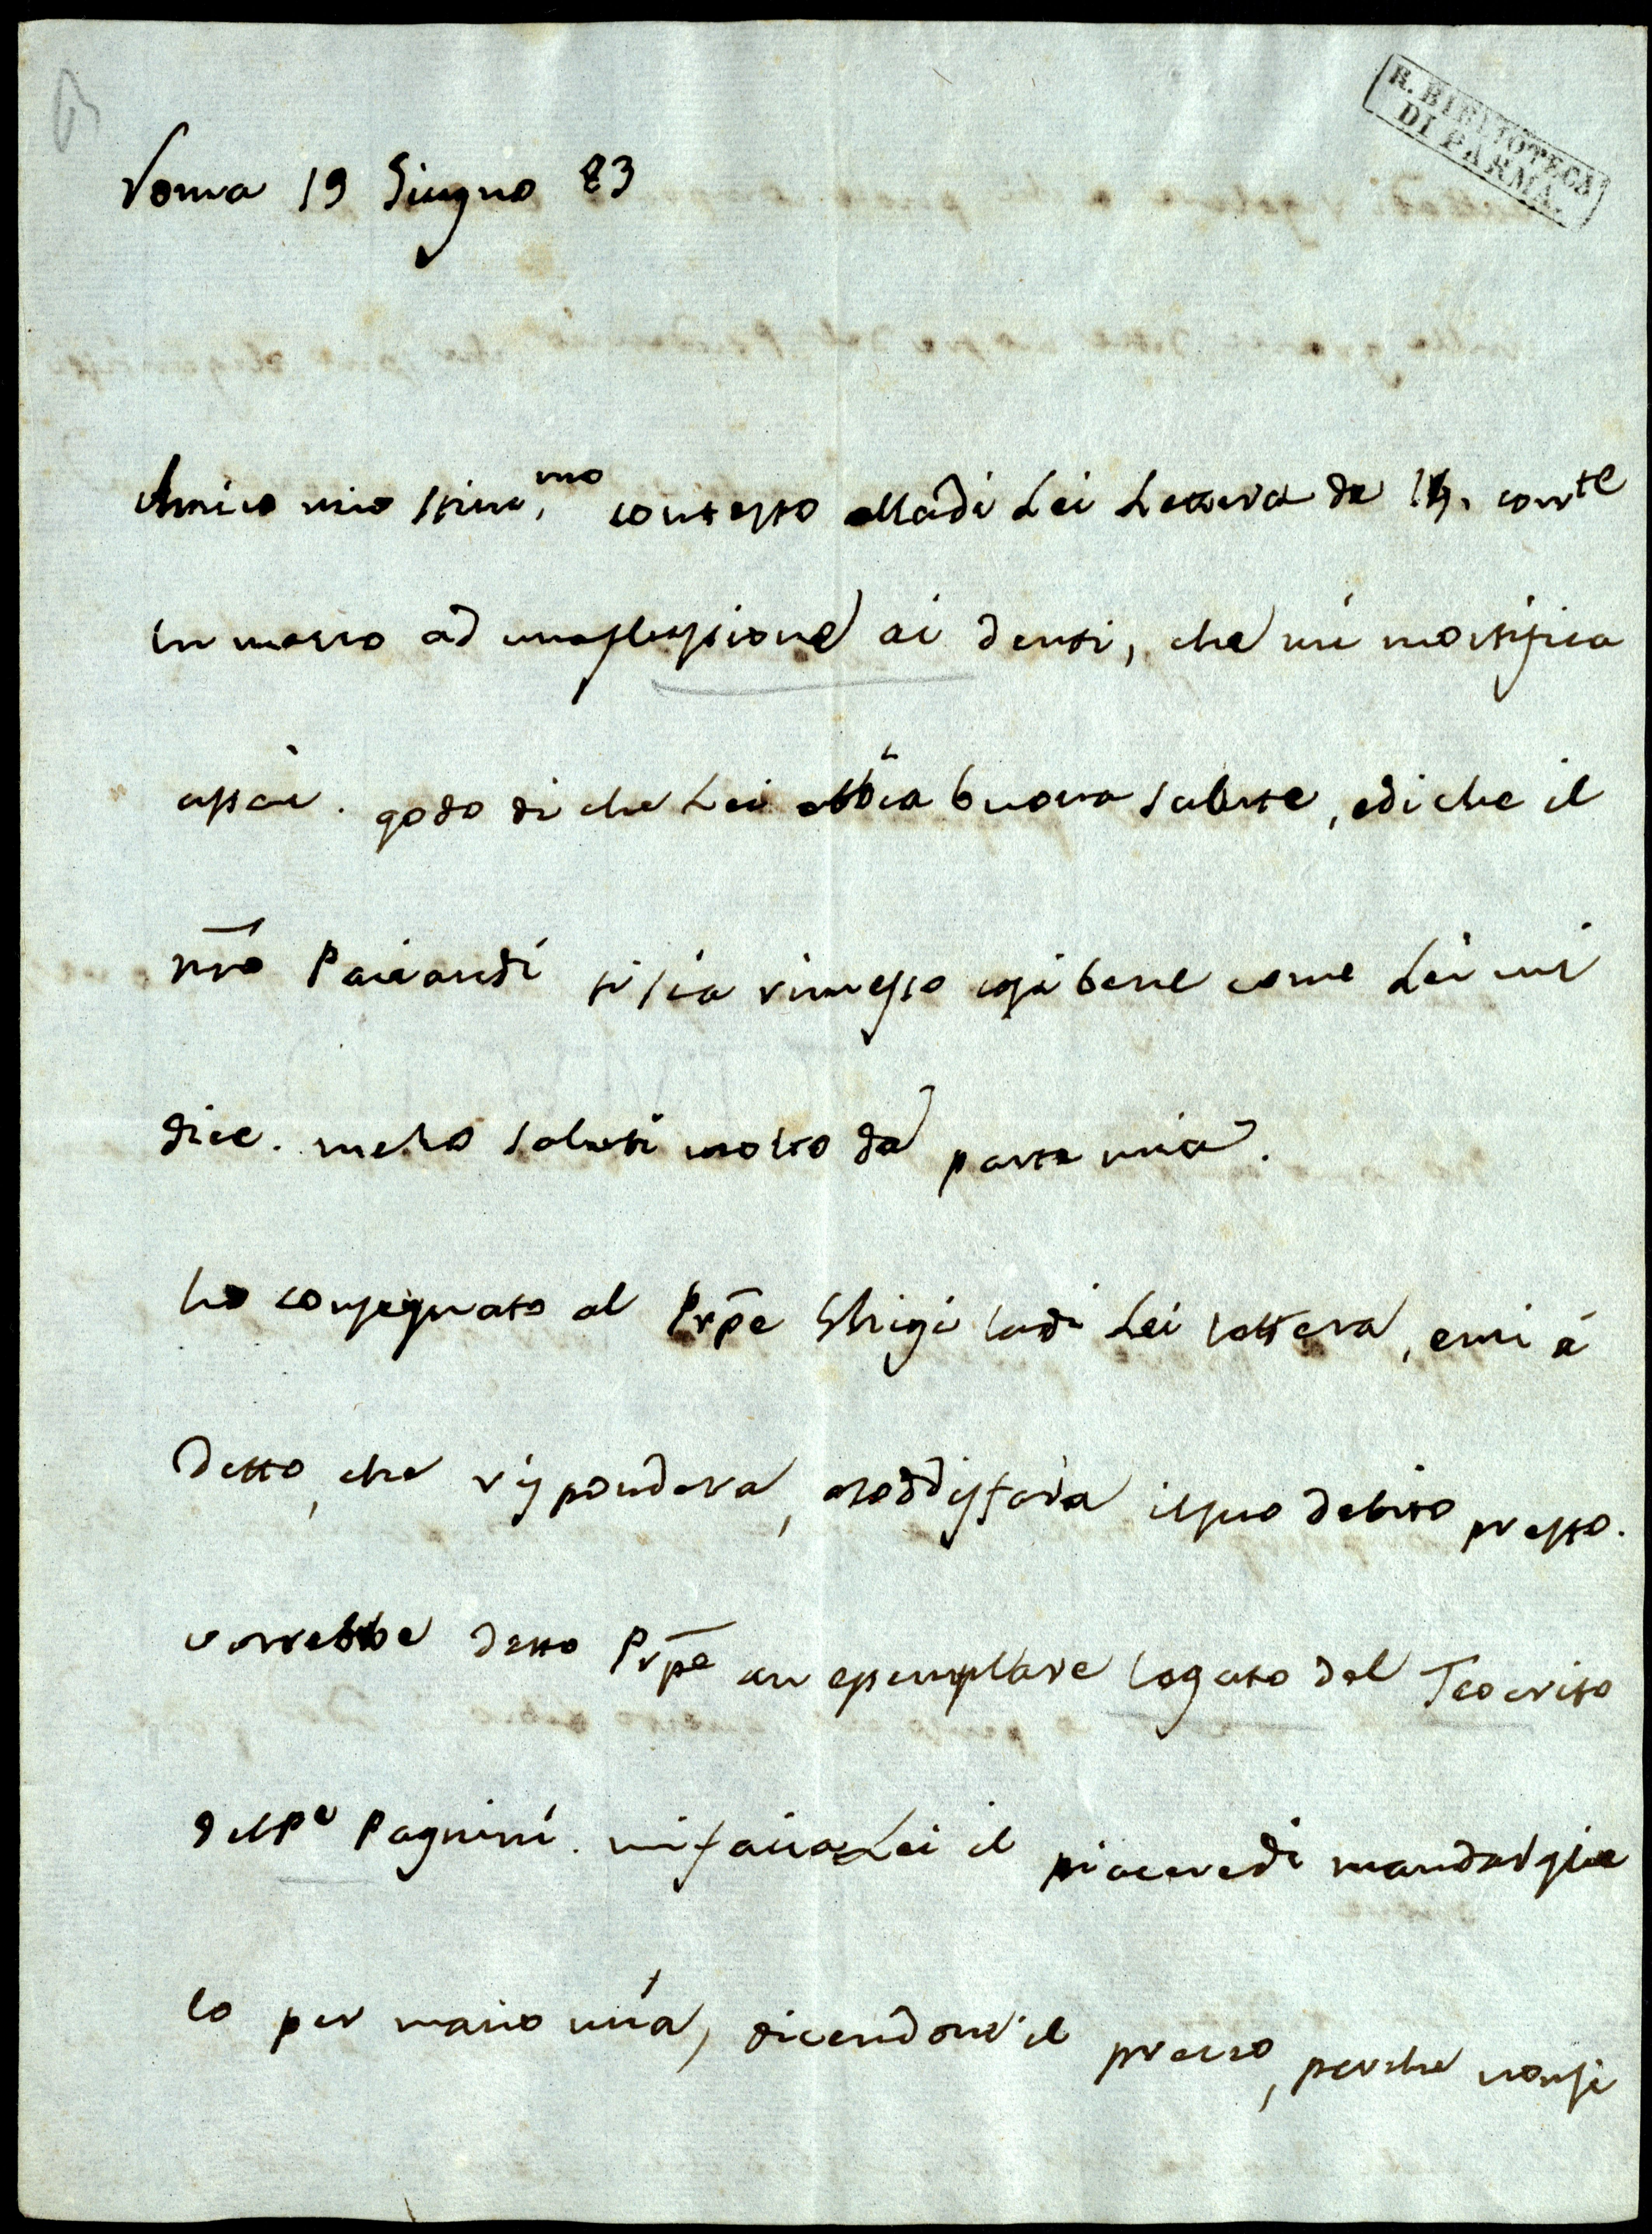 R. BIBLIOTECA
DI PARMA.
Roma 19 Giugno 83
Amico mio stim.mo contesto alla di Lei Lettera de 14. corrte
in mezzo ad una flussione ai denti, che mi mortifica
assai. godo di che Lei abbia buona salute, e di che il
nro Paciaudi si sia rimesso così bene come Lei mi
dice. me lo saluti molto da parte mia.
ho consegnato al Prpe Ghigi la di Lei lettera, e mi à
detto, che rispondera, e soddisfara il suo debito presto.
vorrebbe detto Prpe un esemplare legato del Teocrito
del Pe Pagnini. mi faccia Lei il piacere di mandarglie
lo per mano mia, dicendone il prezzo, perche non si